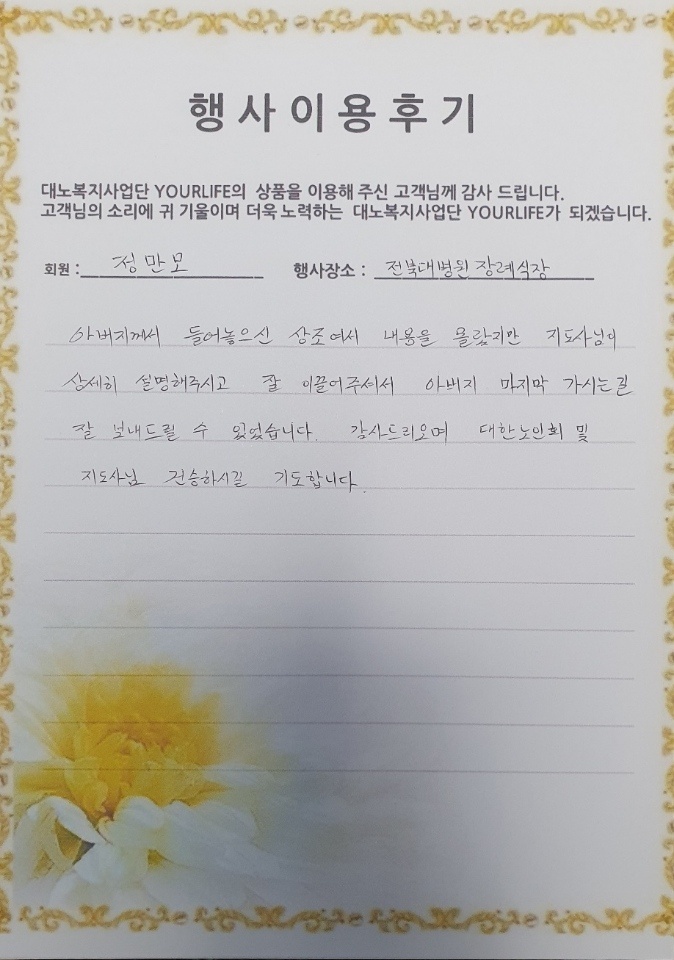 행사이용후기
대노복지사업단 YOURLIFE의 상품을 이용해 주신 고객님께 감사 드립니다.
고객님의 소리에 귀 기울이며 더욱 노력하는 대노복지사업단 YOURLIFE가 되겠습니다.
회원 : 정만모 행사장소 : 전북대병원 장례식장
아버지께서 들어놓으신 상조여서 내용을 몰랐지만 지도사님이
상세히 설명해주시고 잘 이끌어주셔서 아버지 마지막 가시는길
잘 보내드릴 수 있었습니다. 감사드리오며 대한노인회 및
지도사님 건승하시길 기도합니다.